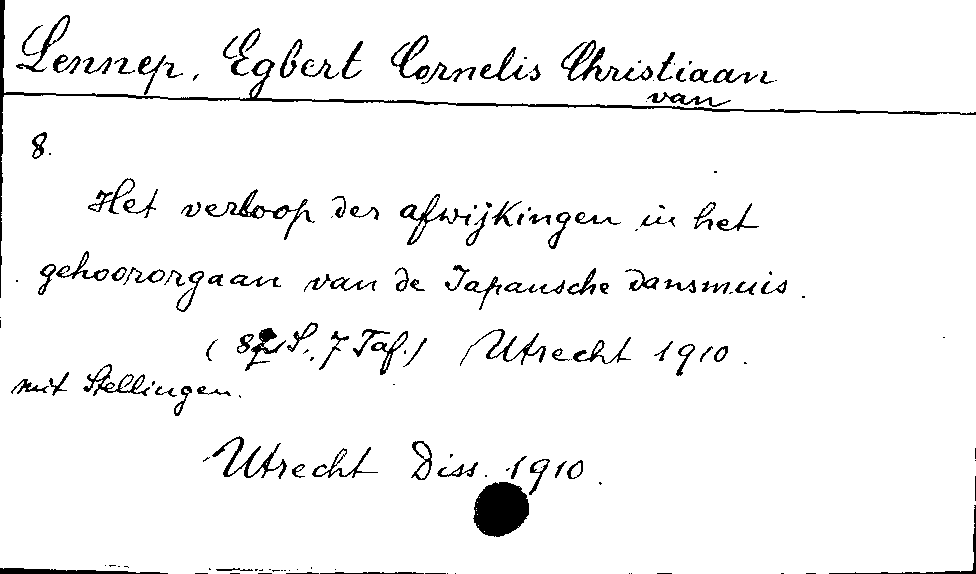 Lennep, Egbert Cornelis Christiaan
van
8.
Het verloop der afwijkingen in het
gehoororgaan van de Japansche dansmuis.
( S., 7 Taf.) Utrecht 1910.
mit Stellingen.
Utrecht Diss. 1910.